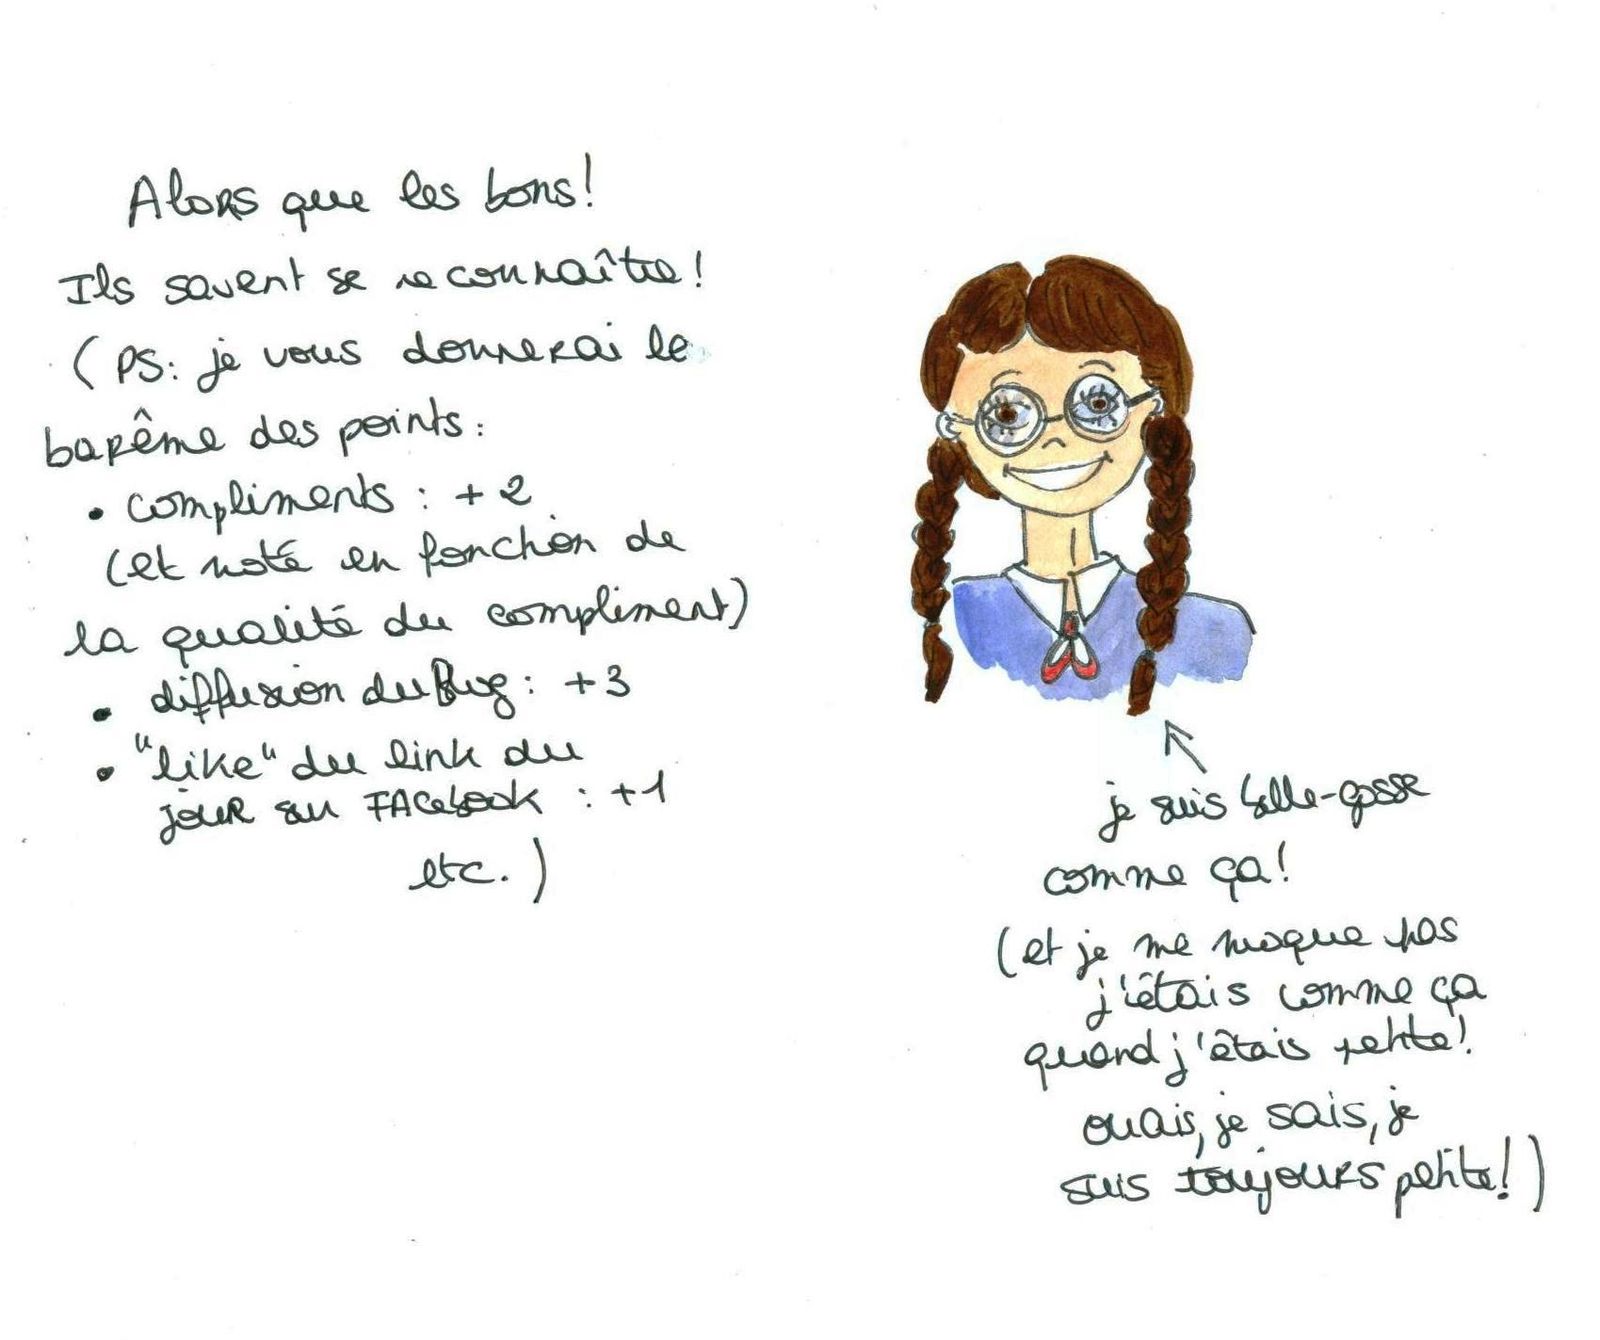 Alors que les bons!
Ils savent se reconnaître!
(PS: je vous donnerai le
barême des points:
• compliments : +2
(et noté en fonction de
la qualité du compliment)
• diffusion du Blog : +3
• "like" du link du
jour sur FACebook : +1
etc.)
je suis salle-gosse
comme ça!
(et je me moque pas
j'étais comme ça
quand j'êtais petite!
ouais, je sais, je
suis toujours petite!)